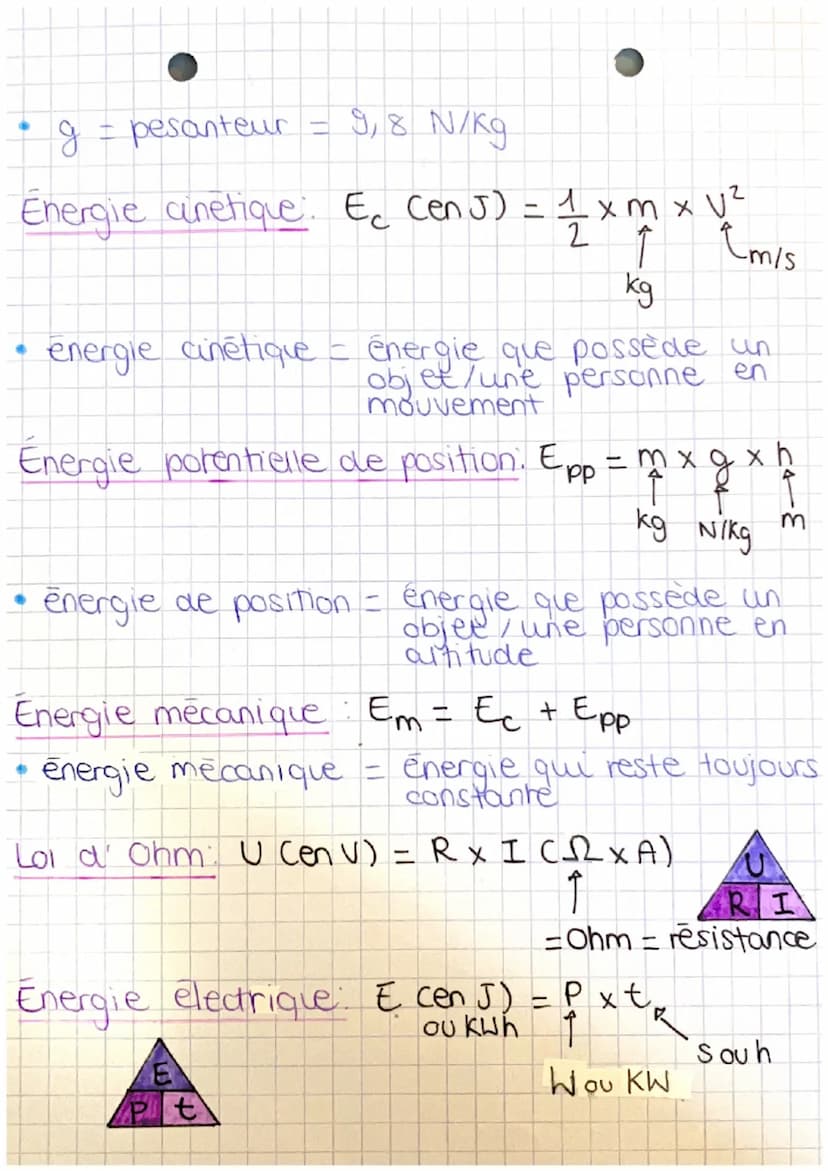 • g = pesanteur = 9,8 N/Kg
Énergie cinétique: Ec (en J) = 1/2 x m x V²
kg
m/s
• énergie cinétique = énergie que possède un
objet/une personne en
mouvement
Énergie potentielle de position: Epp = m x g x h
kg N/kg m
• énergie de position = énergie que possède un
objet/une personne en
altitude
Énergie mécanique : Em = Ec + Epp
• énergie mécanique = énergie qui reste toujours
constante
Loi d'Ohm: U (en V) = R x I (Ω x A)
U
R I
= Ohm = résistance
Énergie électrique: E (en J) = P x t
ou KWh
s ou h
W ou KW
E
P t